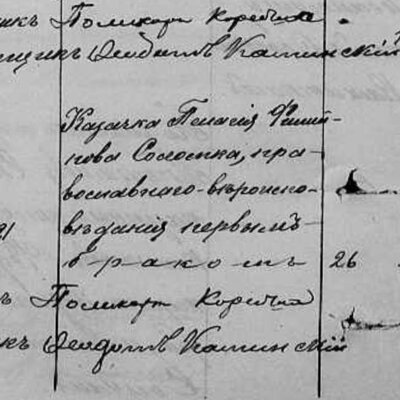 икъ Поликарпъ Коребка
щикъ Ѳеодотъ Каминскій
Казачка Пелагія Фили-
пова Солошка, пра-
вославнаго вѣроиспо-
91 вѣданія первымъ
бракомъ 26
ъ Поликарпъ Коребка
икъ Ѳеодотъ Каминскій